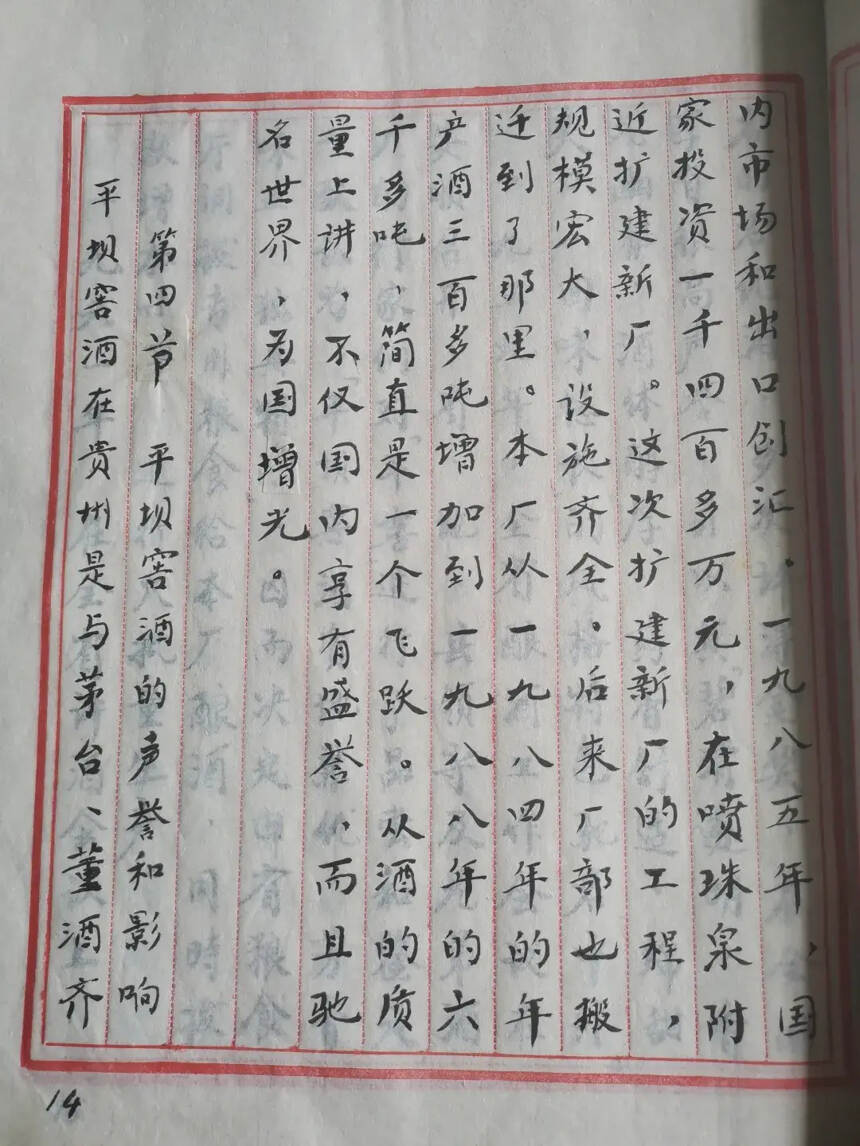 内市场和出口创汇。一九八五年,国
家投资一千四百多万元,在喷珠泉附
近扩建新厂。这次扩建新厂的工程,
规模宏大,设施齐全。后来厂部也搬
迁到了那里。本厂从一九八四年的年
产酒三百多吨增加到一九八八年的六
千多吨,简直是一个飞跃。从酒的质
量上讲,不仅国内享有盛誉,而且驰
名世界,为国增光。
第四节 平坝窖酒的声誉和影响
平坝窖酒在贵州是与茅台、董酒齐
14